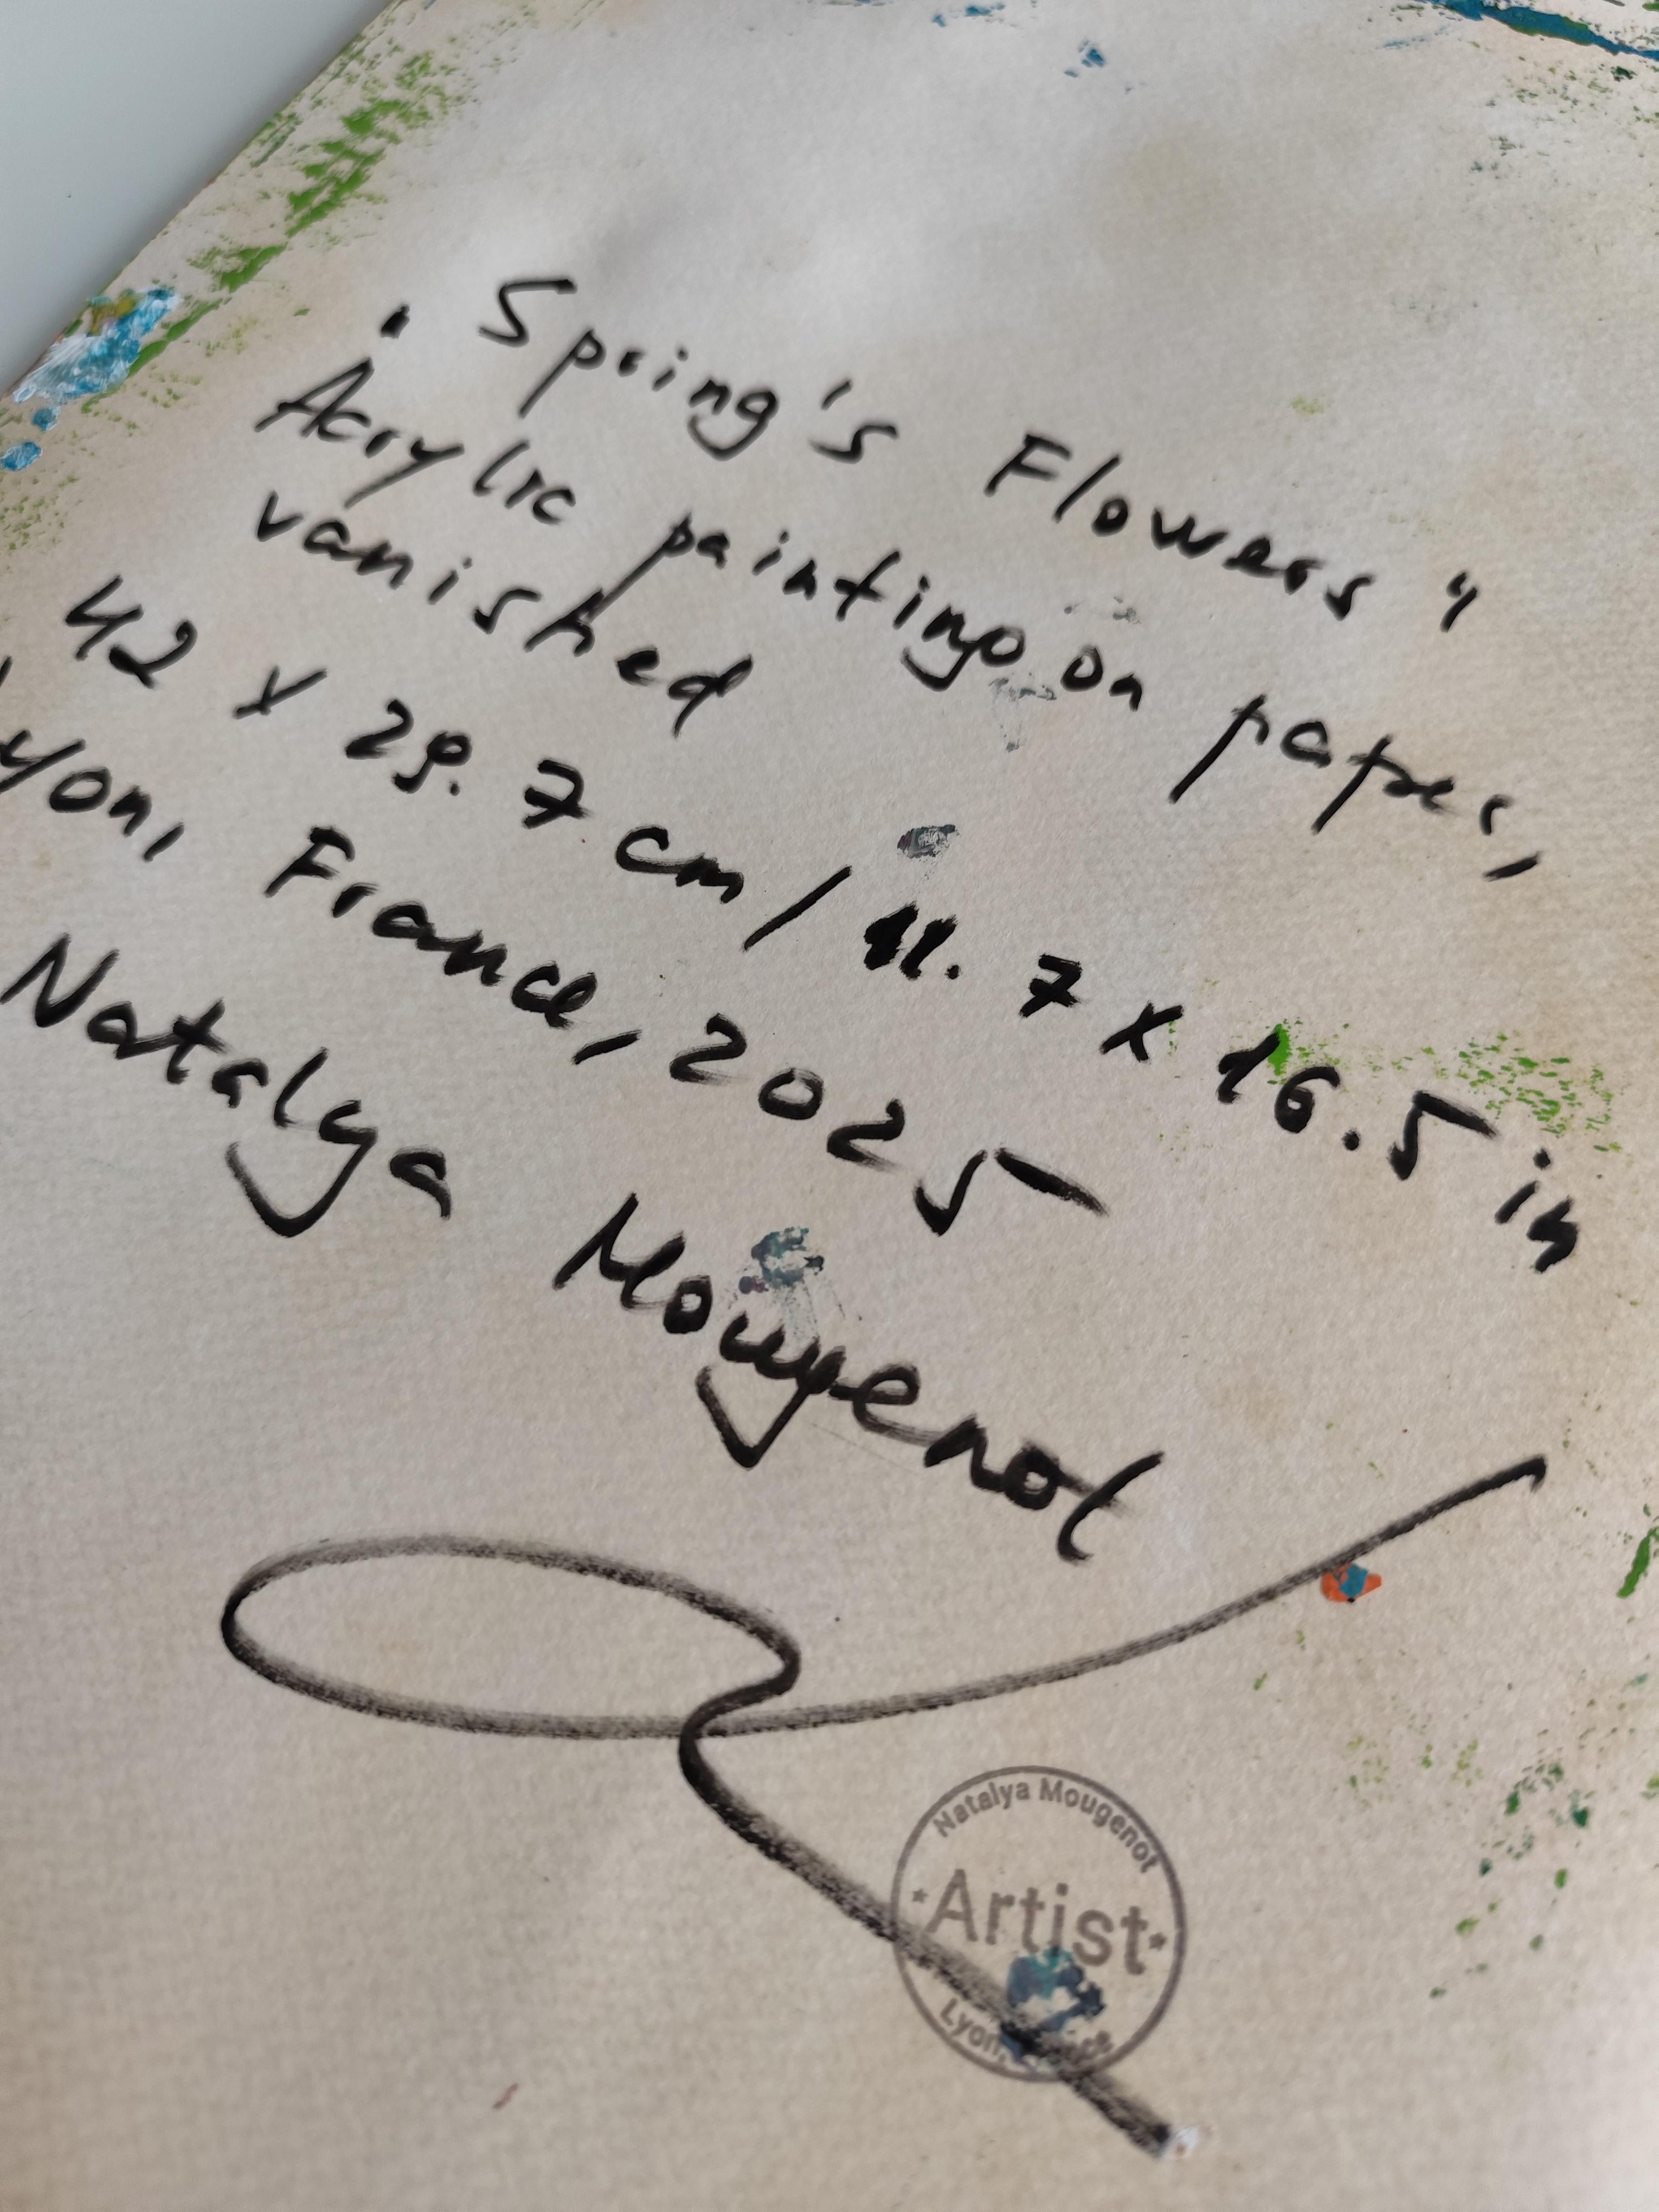 "Spring's Flowers"
Acrylic painting on paper,
vanished
42 x 29.7 cm / 11.7 x 16.5 in
yon, France, 2025
Natalya Mougenot
Natalya Mougenot
Artist
Lyon,